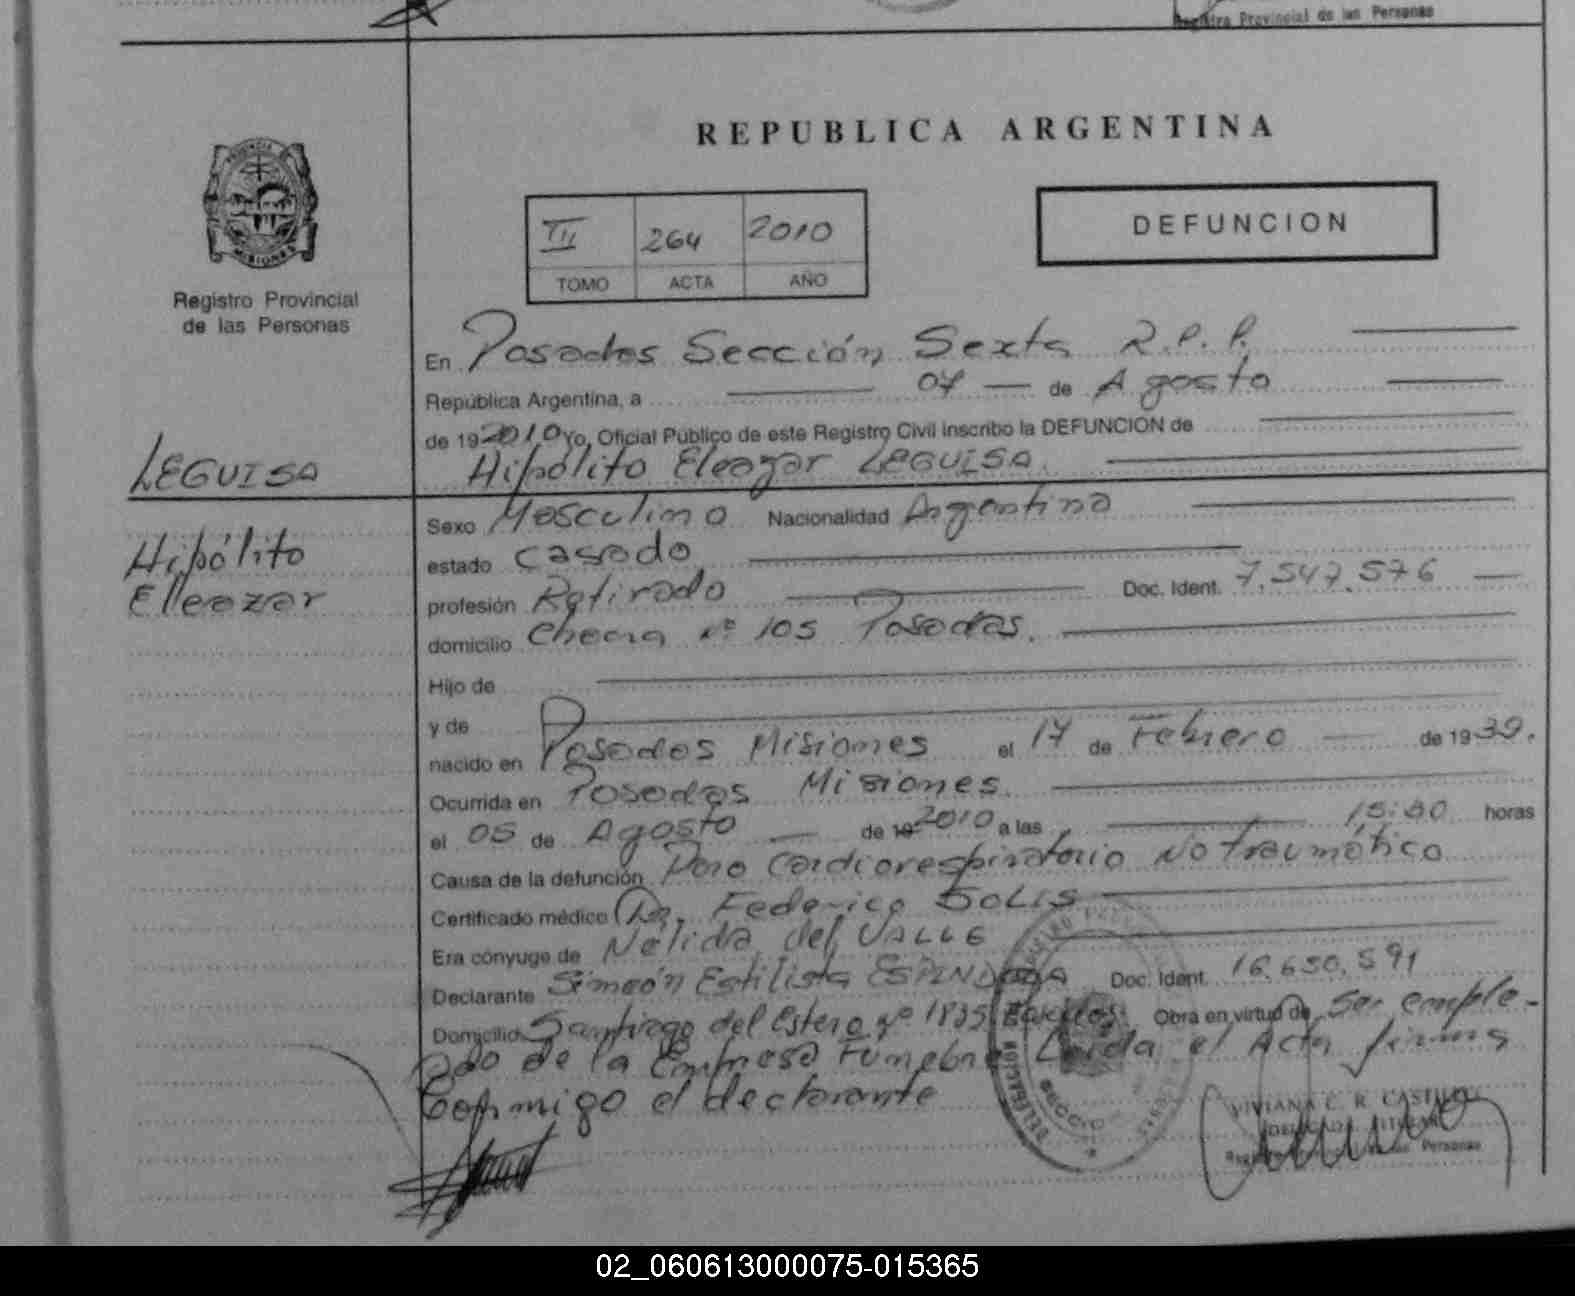 Registro Provincial de las Personas
REPUBLICA ARGENTINA
PROVINCIA
MISIONES
Registro Provincial
de las Personas
III 264 2010
TOMO ACTA AÑO
DEFUNCION
En Posadas Sección Sexta R.P.P.
República Argentina, a 07 de Agosto
de 19 2010 Yo, Oficial Público de este Registro Civil inscribo la DEFUNCION de
Hipólito Eleazar LEGUISA.
LEGUISA
Hipólito
Eleazar
Sexo Masculino Nacionalidad Argentina
estado casado
profesión Retirado Doc. Ident. 7.547.576
domicilio Nº 105 Posadas.
Hijo de
y de
nacido en Posadas Misiones el 17 de Febrero de 1939.
Ocurrida en Posadas Misiones.
el 05 de Agosto de 19 2010 a las 15:30 horas
Causa de la defunción Paro Cardiorespiratorio No traumático
Certificado médico Dr. Federico SOLIS
Era cónyuge de Nélida del VALLE
Declarante Simeón Estilista ESPINDOLA Doc. Ident. 16.650.591
Domicilio Santiago del Estero Nº 1835 Posadas Obra en virtud de Ser emple-
ado de la Empresa Fúnebre Leída el Acta firma
Conmigo el declarante
VIVIANA C. R. CASTILLO
DELEGADA TITULAR
Registro Provincial de las Personas
02_060613000075-015365